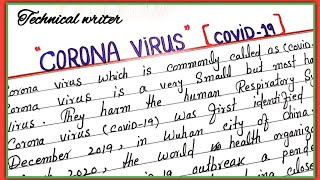 Technical writer
"CORONA VIRUS" [COVID-19]
Corona virus which is commonly called as (covid-
Corona virus is a very Small but most ha
Virus. They harm the human Respiratory Sy
Corona virus (Covid-19) was first identified
December 2019, in Wuhan city of China
2020, the world health organiz
19 outbreak a pande